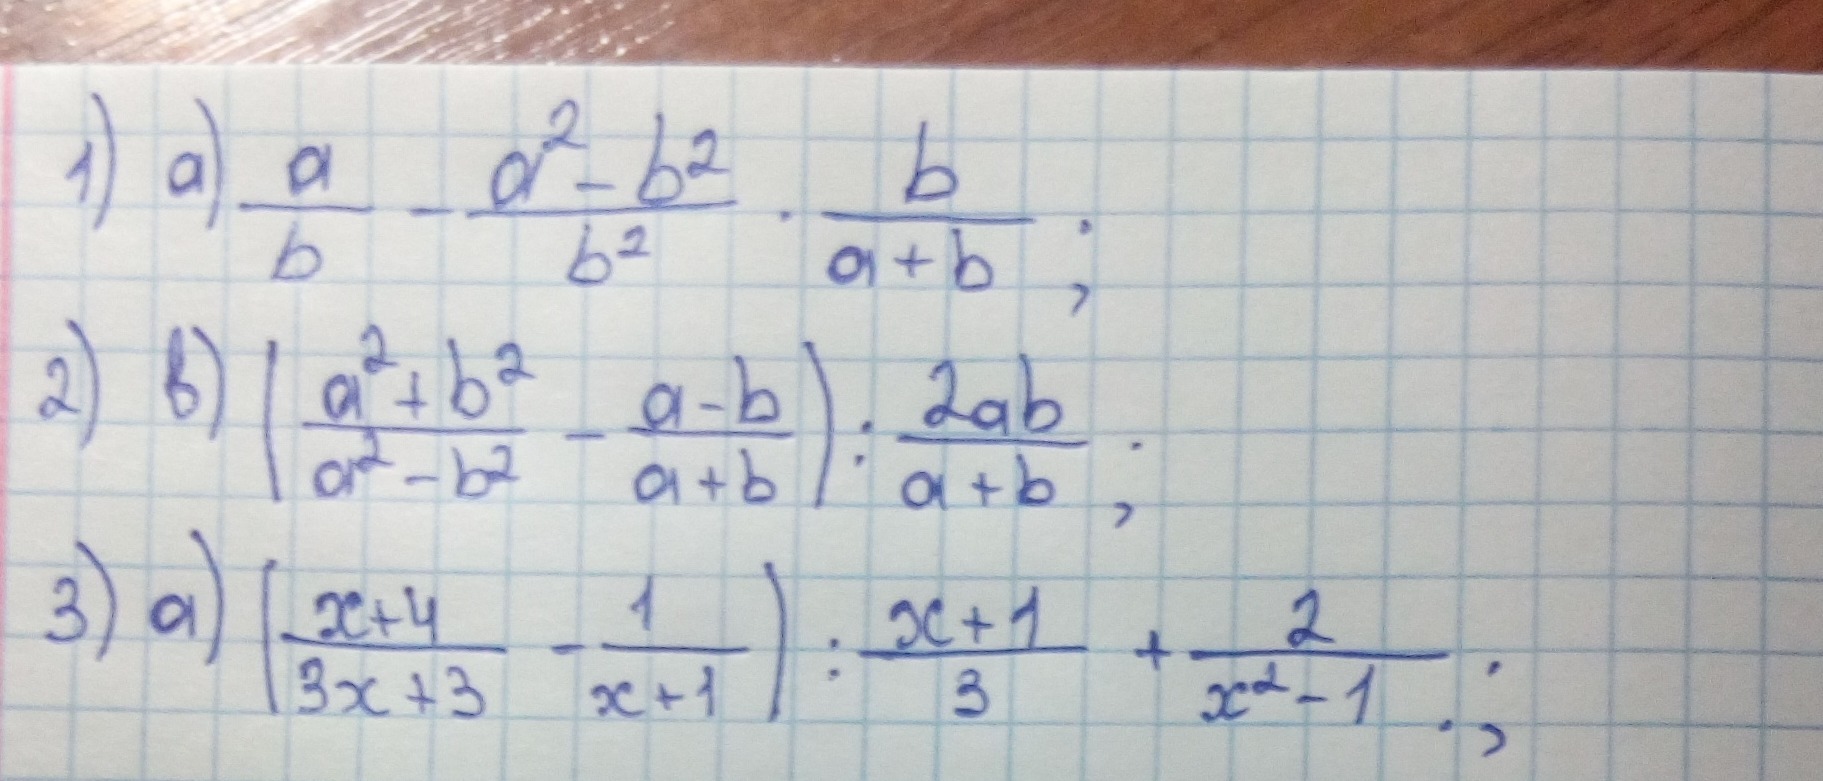 1) a) a/b - (a² - b²)/b² · b/(a + b) ;
2) в) ((a² + b²)/(a² - b²) - (a - b)/(a + b)) : 2ab/(a + b) ;
3) a) ((x + 4)/(3x + 3) - 1/(x + 1)) : (x + 1)/3 + 2/(x² - 1) . ;